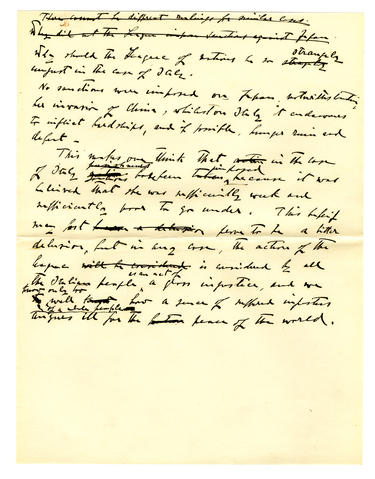 There cannot be different rulings for similar cases.
Why did not the League impose sanctions against Japan.
Why should the League of nations be so strangely strangely
unjust in the case of Italy.
No sanctions were imposed on Japan, notwithstanding
her invasion of China, whilst on Italy it endeavours
to inflict hardships, and if possible, hunger ruin and
defeat.
This makes one think that in the case
of Italy punishment imposed because it was
believed that she was sufficiently weak and
sufficiently poor to go under. This belief
may prove to be a bitter
delusion, but in any case, the action of the
League is considered by all
the Italian people as an act of gross injustice, and we
know only too well how a sense of suffered injustice
of a whole people
augurs ill for the future peace of the world.